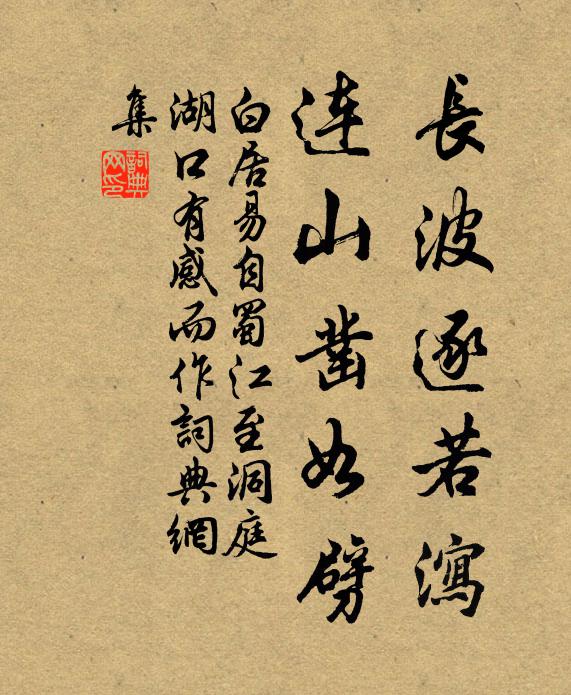 長波逐若瀉
連山鑿如劈
白居易自蜀江至洞庭
湖口有感而作詞典網
集
詞典
网印